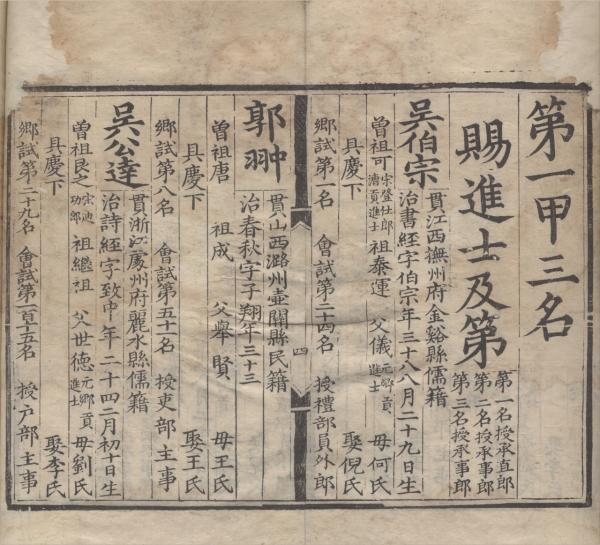 第一甲三名
賜進士及第
第一名授承直郎
第二名授承事郎
第三名授承事郎
吳伯宗
貫江西撫州府金谿縣儒籍
治書經字伯宗年三十八八月二十九日生
曾祖可宋登仕郎漕貢進士 祖泰運 父儀元鄉貢進士 母何氏
具慶下 娶倪氏
鄉試第一名 會試第二十四名 授禮部員外郎
四
郭翀
貫山西潞州壺關縣民籍
治春秋字子翔年三十三
曾祖唐 祖成 父舉賢 母王氏
具慶下 娶王氏
鄉試第八名 會試第五十名 授吏部主事
吳公達
貫浙江處州府麗水縣儒籍
治詩經字致中年二十四二月初十日生
曾祖艮之宋迪功郎 祖繼祖 父世德元鄉貢進士 母劉氏
具慶下 娶李氏
鄉試第二十九名 會試第百十五名 授戶部主事